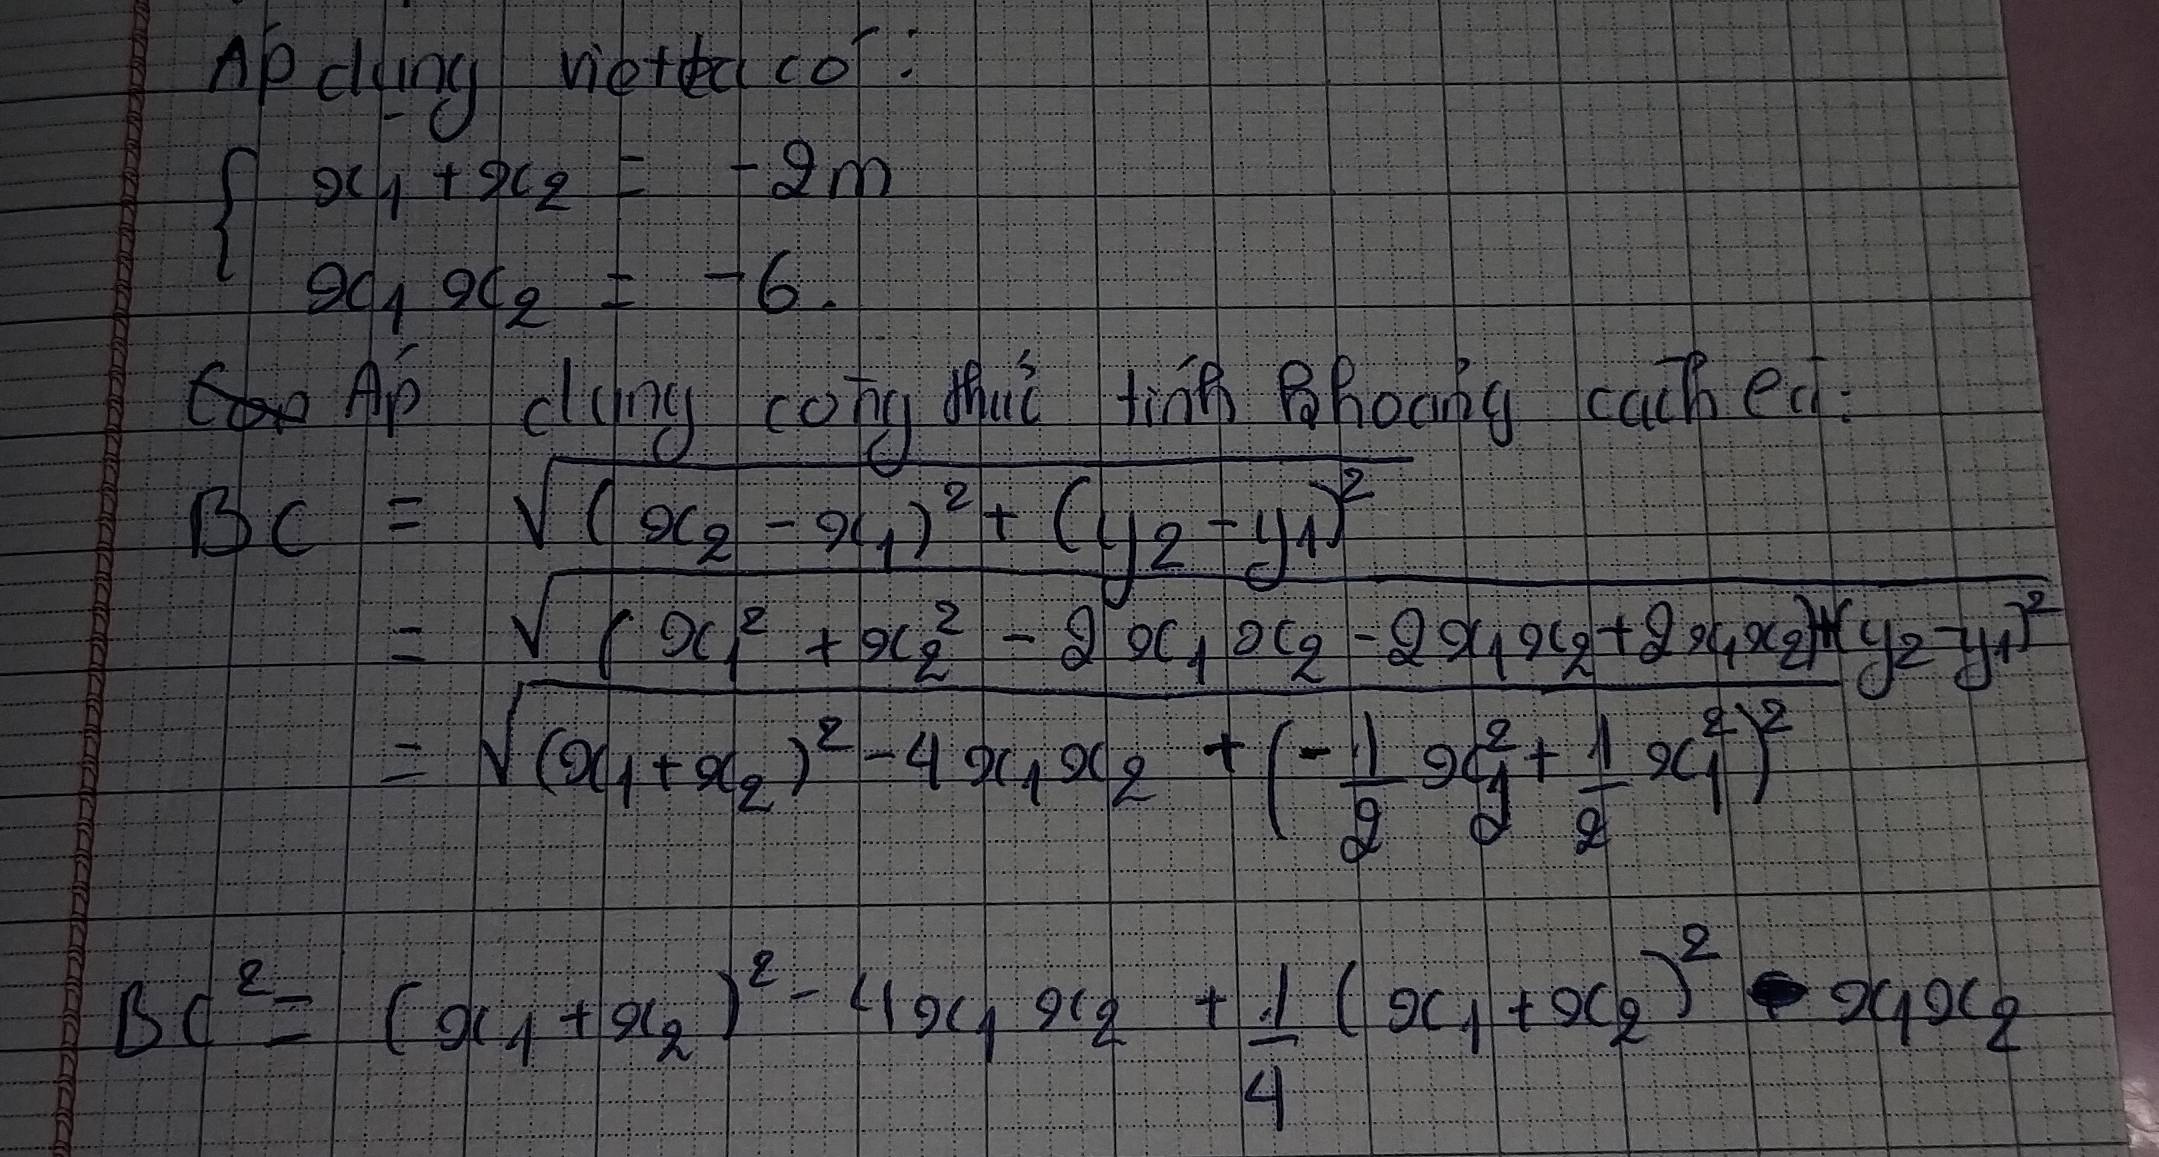 Áp dụng viet ta có:
{ x₁ + x₂ = -2m
x₁ x₂ = -6.
Áp dụng công thức tính khoảng cách có:
BC = √((x₂ - x₁)² + (y₂ - y₁)²)
= √((x₁² + x₂² - 2x₁x₂ - 2x₁x₂ + 2x₁x₂) + (y₂ - y₁)²)
= √((x₁ + x₂)² - 4x₁x₂ + (-1/2 x₂² + 1/2 x₁²)²)
BC² = (x₁ + x₂)² - 4x₁x₂ + 1/4 (x₁ + x₂)² - x₁x₂